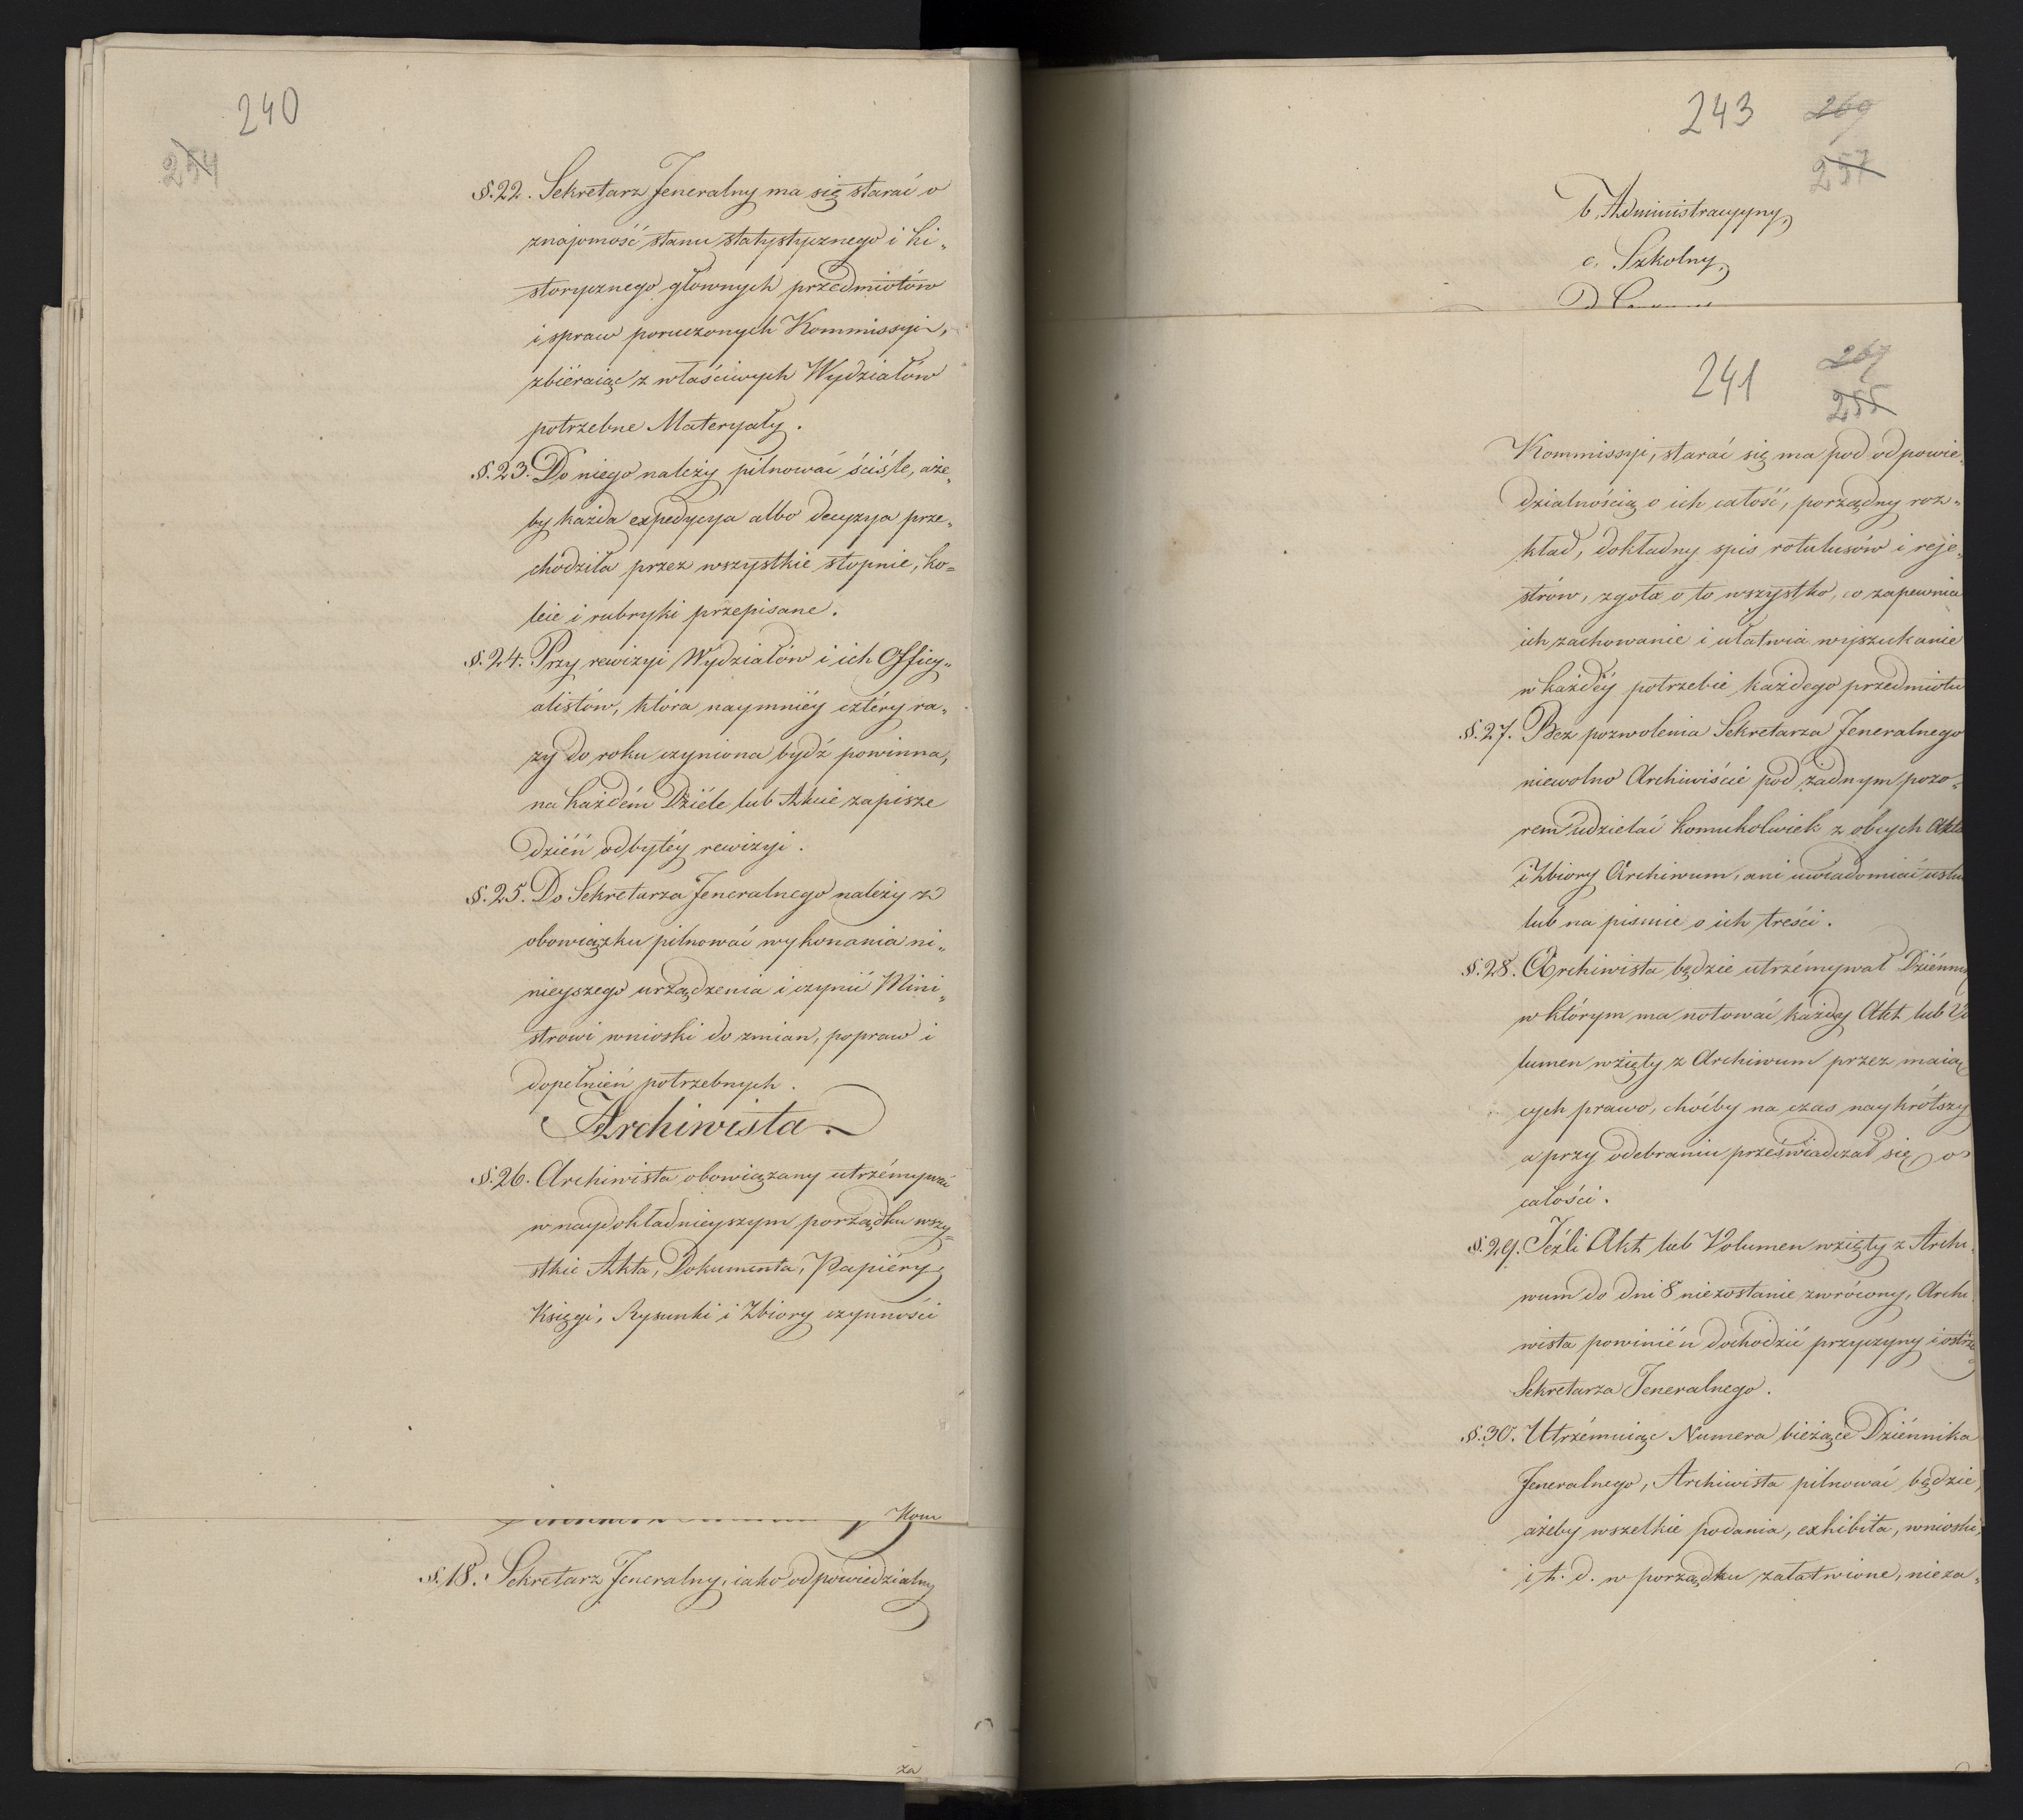 240
254
§. 22. Sekretarz Jeneralny ma się starać o
znajomość stanu statystycznego i hi„
storycznego głównych przedmiotów
i spraw poruczonych Kommissyi,
zbiéraiąc z właściwych Wydziałów
potrzebne Materyały.
§. 23. Do niego należy pilnować ściśle, aże„
by każda expedycya albo decyzya prze„
chodziła przez wszystkie stopnie, ko=
leie i rubryki przepisane.
§. 24. Przy rewizyi Wydziałów i ich Officy„
alistów, która naymniéy cztéry ra„
zy do roku czyniona bydź powinna,
na każdém Dziéle lub Akcie zapisze
dzień odbytéy rewizyi.
§. 25. Do Sekretarza Jeneralnego należy z
obowiązku pilnować wykonania ni„
nieyszego urządzenia i czynić Mini„
strowi wnioski do zmian, popraw i
dopełnień potrzebnych.
Archiwista.
§. 26. Archiwista obowiązany utrzémywać
w naydokładnieyszym porządku wszy„
stkie Akta, Dokumenta, Papiéry,
Księgi, Rysunki i Zbiory czynności
Kom
§. 18. Sekretarz Jeneralny, iako odpowiedzialny
za
243
269
257
b, Administracyyny,
c, Szkolny,
241
267
255
Kommissyi, starać się ma pod odpowie„
dzialnością o ich całość, porządny roz„
kład, dokładny spis rotulusów i reje„
strów, zgoła o to wszystko, co zapewnia
ich zachowanie i ułatwia wyszukanie
w każdéy potrzebie każdego przedmiotu
§. 27. Bez pozwolenia Sekretarza Jeneralnego
niewolno Archiwiście pod żadnym pozo„
rem udzielać komukolwiek z obcych Akta
i Zbiory Archiwum, ani uwiadomiać ustn
lub na pismie o ich treści.
§. 28. Archiwista będzie utrzémywał Dziénn
w którym ma notować każdy Akt lub Vo
lumen wzięty z Archiwum przez maią
cych prawo, choćby na czas naykrótszy
a przy odebraniu przeświadczał się o
całości.
§. 29. Jeźli Akt lub Volumen wzięty z Archi„
wum do dni 8 niezostanie zwrócony, Archi
wista powinién dochodzić przyczyny i ostrze
Sekretarza Jeneralnego.
§. 30. Utrzémuiąc Numera bieżące Dziénnika
Jeneralnego, Archiwista pilnować będzie,
ażeby wszelkie podania, exhibita, wnioski,
i t. d. w porządku załatwione, nieza„